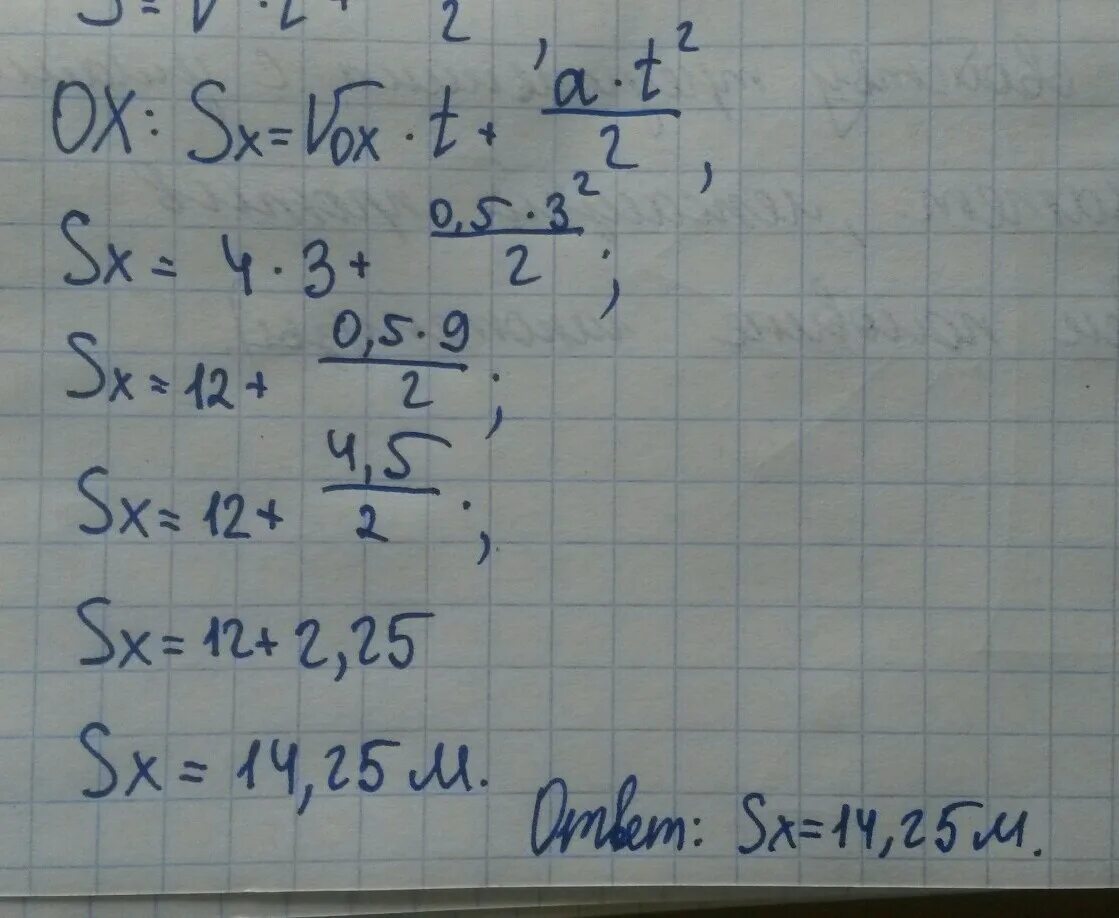 OX: Sx = V₀x · t + a · t² / 2 ,
Sx = 4 · 3 + 0,5 · 3² / 2 ;
Sx = 12 + 0,5 · 9 / 2 ;
Sx = 12 + 4,5 / 2 ;
Sx = 12 + 2,25
Sx = 14,25 м.
Ответ: Sx = 14,25 м.